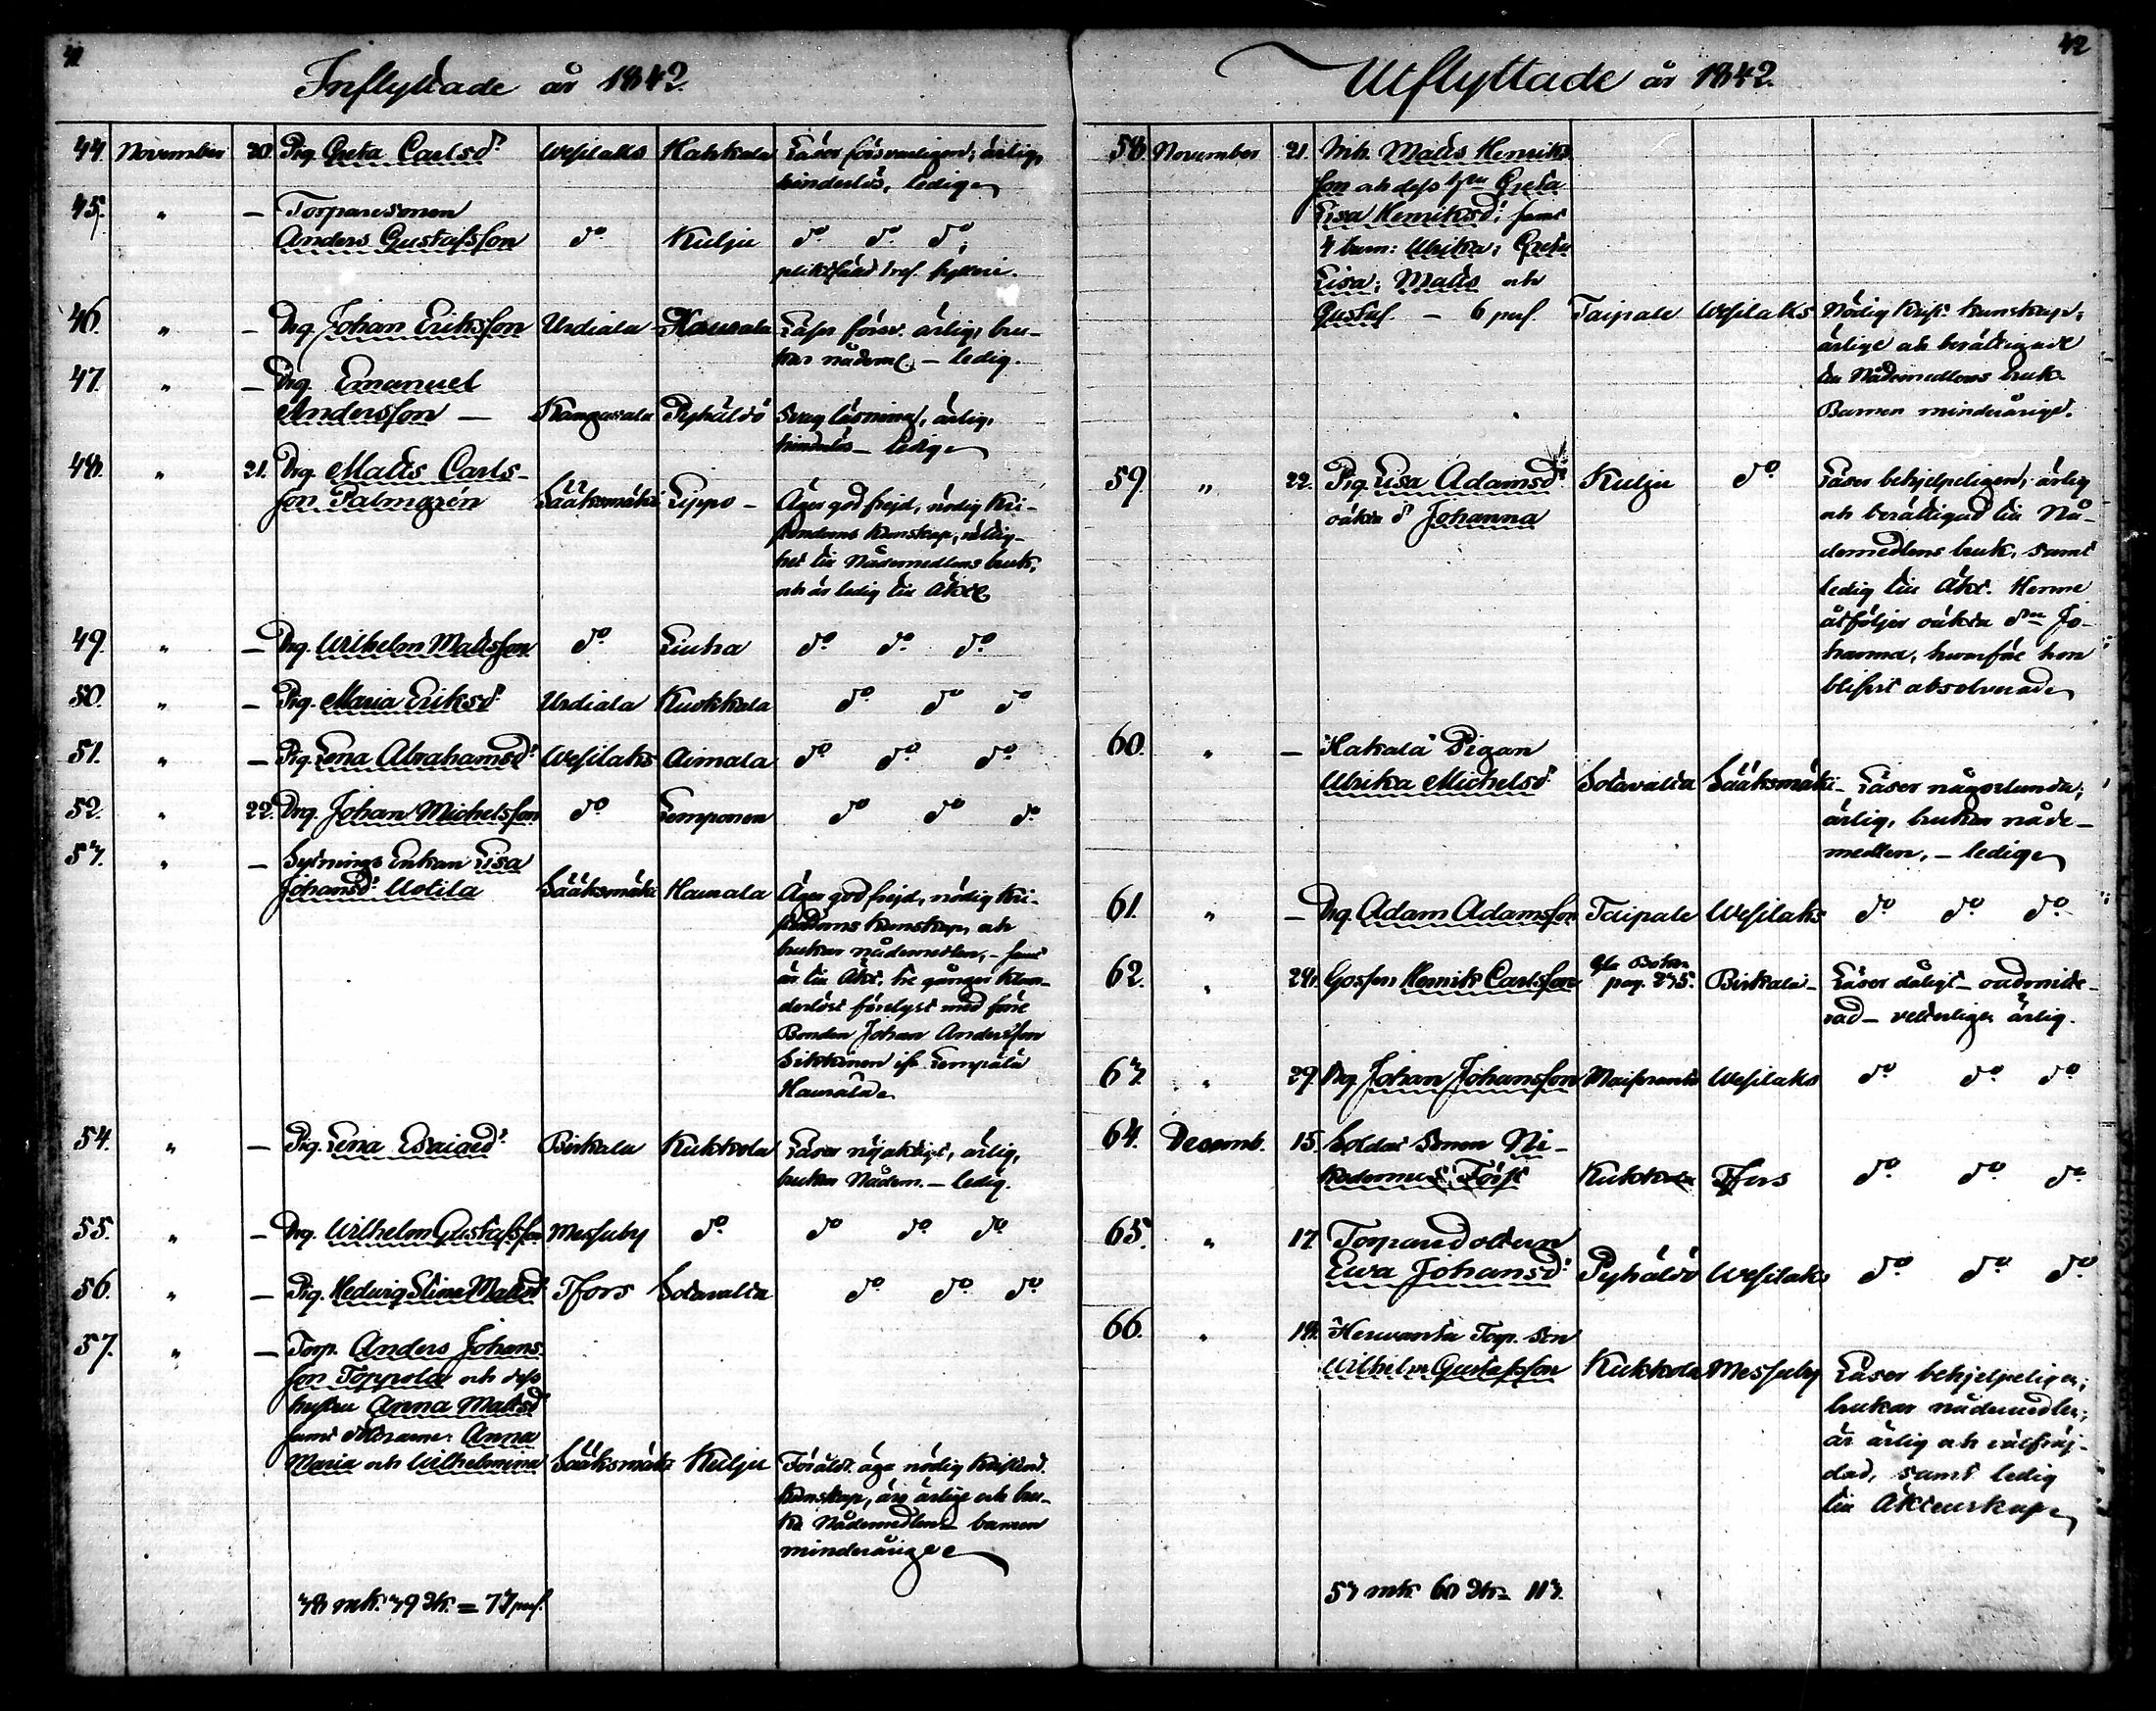 41
Inflyttade år 1842.
44. November 20. Pig. Greta Carlsd:r Wesilaks Hakkala Läser försvarligen; ärlig,
hinderlös, ledig
45. " — Torparesonen
Anders Gustafsson d:o Kulju d:o d:o d:o;
46. " — Drg. Johan Eriksson Urdiala Haurala Läser försv. ärlig, bru-
kar nådem. — ledig.
47. " — Drg. Emanuel
Andersson — Kangasala Pyhäldö Svag läsning, ärlig,
hinderlös — ledig
48. " 21. Drg. Matts Carls-
son Palmgrén Sääksmäki Lippo — Äger god frejd, nödig Kri-
stendoms kunskap, rättig-
het till Nådemedlens bruk,
och är ledig till Äkt.
49. " — Drg. Wilhelm Mattsson d:o Liuha d:o d:o d:o
50. " — Pig. Maria Eriksd:r Urdiala Kuokkala d:o d:o d:o
51. " — Pig. Lena Abrahamsd:r Wesilaks Aimala d:o d:o d:o
52. " 22. Drg. Johan Michelsson d:o Lemponen d:o d:o d:o
53. " — Sytnings Enkan Lisa
Johansd:r Uotila Sääksmäki Haurala Äger god frejd, nödig Kri-
stendoms kunskap, och
brukar nådemedlen, — samt
är till Äkt. tre gånger klan-
derlöst förelyst med före
Bonden Johan Andersson
Sikkinen ifr. Lempälä
Haurala
54. " — Pig. Lena Esaiaed:r Birkala Kukkola Läser nöjaktigt, ärlig,
brukar Nådem. — ledig.
55. " — Drg. Wilhelm Gustafsson Messuby d:o d:o d:o d:o
56. " — Pig. Hedwig Stina Mattsd. Tfors Sotavalta d:o d:o d:o
57. " — Torp. Anders Johans-
son Toppola och dess
hustru Anna Mattsd:r
samt döttrarne: Anna
Maria och Wilhelmina Sääksmäki Kulju Föräldr. äga nödig Kristend.
kunskap, äro ärlige och bru-
ka Nådemedlen — barnen
minderårige
38 mk. 39 qk. = 77 pers.
42
Utflyttade år 1842.
58. November 21. Inh. Matts Henriks-
son och dess h:ru Greta
Lisa Henriksd:r samt
4 barn: Ulrika; Greta
Lisa; Matts och
Gustaf. — 6 pers. Taipale Wesilaks Nödig Krist. kunskap;
ärlige och berättigade
till Nådemedlens bruk.
Barnen minderårige.
59. " 22. Pig. Lisa Adamsd:r Kulju d:o Läser behjelpeligen; ärlig
oäkta d:r Johanna och berättigad till Nå-
demedlens bruk, samt
ledig till Äkt. Henne
åtföljer oäkta d:n Jo-
hanna, hvarföre hon
blifvit absolverad
60. " — Hakala Pigan
Ulrika Michelsd:r Sotavalta Sääksmäki — Läser någorlunda;
ärlig, brukar nåde-
medlen, — ledig
61. " — Drg. Adam Adamsson Taipale Wesilaks d:o d:o d:o
62. " 24. Gossen Henrik Carlsson pag. 235. Birkala — Läser dåligt — oadmitte-
rad — veterligen ärlig.
63. " 29. Drg. Johan Johansson Maisranta Wesilaks d:o d:o d:o
64. Decemb. 15. Soldat Sonen Ni-
kodemus Töist Kukkola Tfors d:o d:o d:o
65. " 17. Torparedottern
Ewa Johansd:r Pyhäldö Wesilaks d:o d:o d:o
66. " 18. Herwanta Torp. Son
Wilhelm Gustafsson Kukkola Messuby Läser behjelpeligen;
brukar nådemedlen;
är ärlig och välfräj-
dad, samt ledig
till Äktenskap
53 mk. 60 qk. = 113.